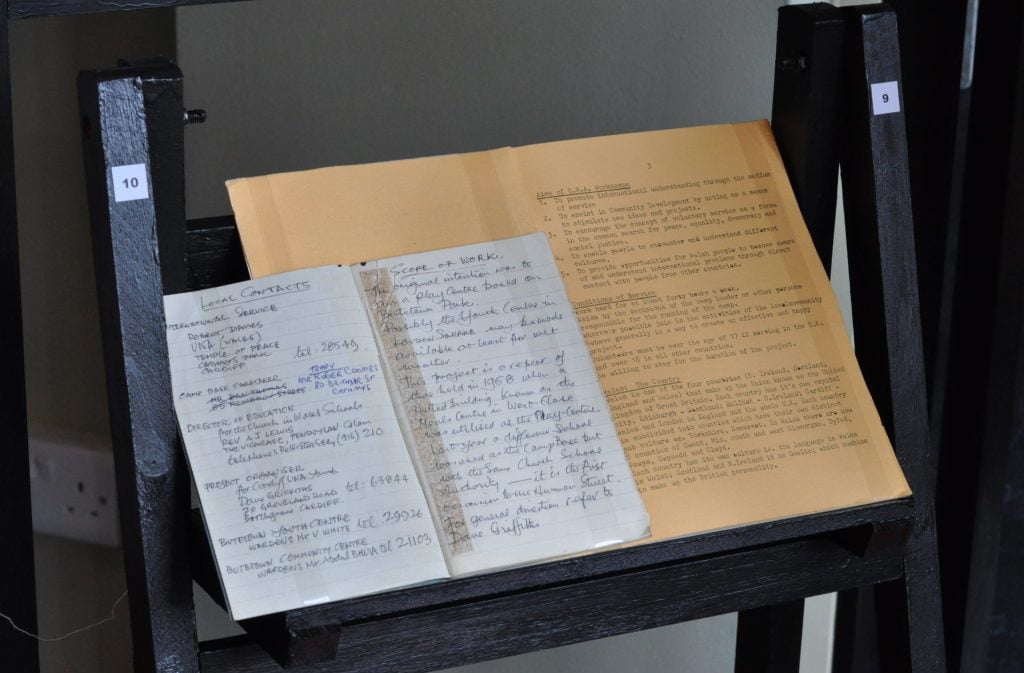 10
9
LOCAL CONTACTS
INTERNATIONAL SERVICE
ROBERT DAVIES
UNA (WALES)
TEMPLE OF PEACE
CATHAYS PARK
CARDIFF
tel: 28549.
CAMP BASE CARETAKER
MR ROGER COOMBES
CATHAYS
DIRECTOR OF EDUCATION
for the Church in Wales Schools
REV A J LEWIS
THE VICARAGE, PENDOYLAN Glam
telephone: Peterston Sely (916) 210
PROJECT ORGANISER
for Cardiff UNA Youth
DAVE GRIFFITHS
20 GROVELAND ROAD tel: 63844
Birchgrove CARDIFF.
BUTETOWN YOUTH CENTRE
WARDEN: Mr V WHITE tel 29926
BUTETOWN COMMUNITY CENTRE
WARDEN: Mr Abdul tel 21103
SCOPE OF WORK.
The original intention was to
run a Play Centre based on
Butetown Park.
Possibly the Youth Centre in
LOUDON SQUARE may be made
available at least for wet
weather.
This project is a repeat of
that held in 1968 when a
building known as the
Centre in West Close
was utilised as the Play-Centre.
Last year a different School
was used as the Camp Base but
with the Same Church School
Authority — it is the first
Human Street.
For general direction refer to
Dave Griffiths
3
Aims of U.N.A. Workcamps
1. To promote international understanding through the medium
of service
2. To assist in Community Development by acting as a means
to stimulate new ideas and projects.
3. To encourage the concept of voluntary service as a force
in the common search for peace, equality, democracy and
social justice.
4. To enable people to encounter and understand different
cultures.
5. To provide opportunities for Welsh people to become aware
of and understand international problems through direct
contact with people from other countries.
Conditions of Service
work for at least forty hours a week.
Abide by the decisions of the camp leader or other persons
responsible for the running of the camp.
wherever possible join in the activities of the local community
behave generally in a way to create an effective and happy
project.
Volunteers must be over the age of 17 if serving in the U.K.
and over 18 in all other countries.
be willing to stay for the duration of the project.
The Country
is one of the four countries (N. Ireland, Scotland,
England and Wales) that make up the Union known as the United
Kingdom of Great Britain. Each country has it's own capital
Edinburgh - Scotland; Belfast - N.Ireland; Cardiff -
Wales and London - England
is subdivided into counties which have their own distinct
sub culture eg. Yorkshire, Somerset. In Wales there are now
counties of Gwent, Mid, South and west Glamorgan, Dyfed,
Powys, Gwynedd and Clwyd.
Each country has its own culture ie. the language in Wales
is Welsh; Scotland and N.Ireland it is Gaelic; which combine
to make up the British personality.